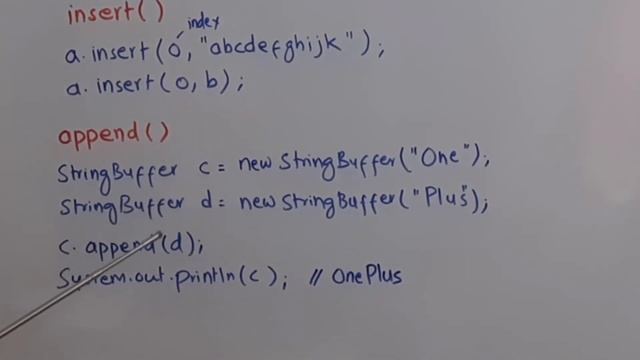 insert()
index
a.insert(0, "abcdefghijk");
a.insert(0, b);
append()
StringBuffer c = new StringBuffer("One");
StringBuffer d = new StringBuffer("Plus");
c.append(d);
System.out.println(c); // OnePlus